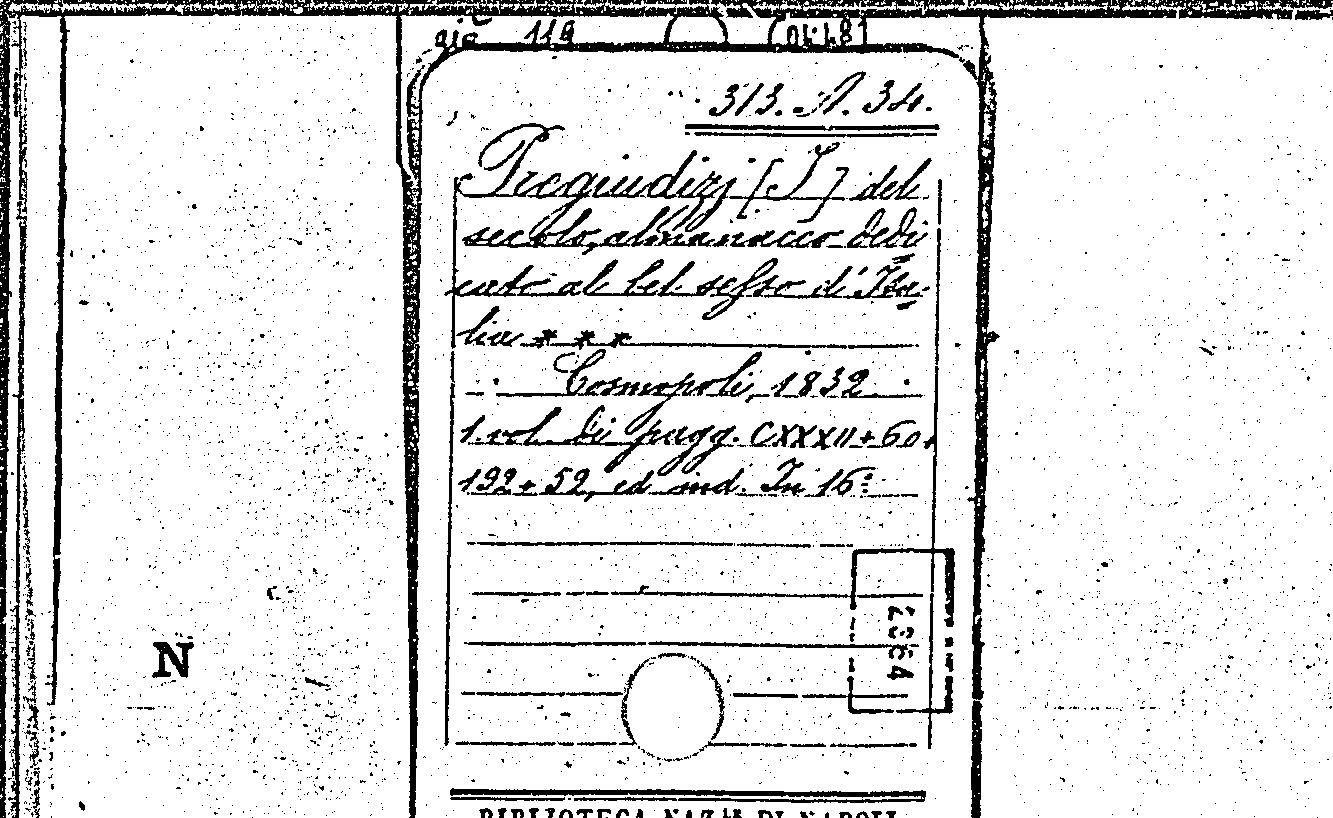 già 119
313. A. 34.
Pregiudizj [I] del
secolo, almanacco dedi
cato al bel sesso d'Ita-
lia * * *
Cosmopoli, 1832.
1 vol. di pagg. CXXXII+60+
192+52, ed ind. In 16º
2364
N
BIBLIOTECA NAZ.LE DI NAPOLI